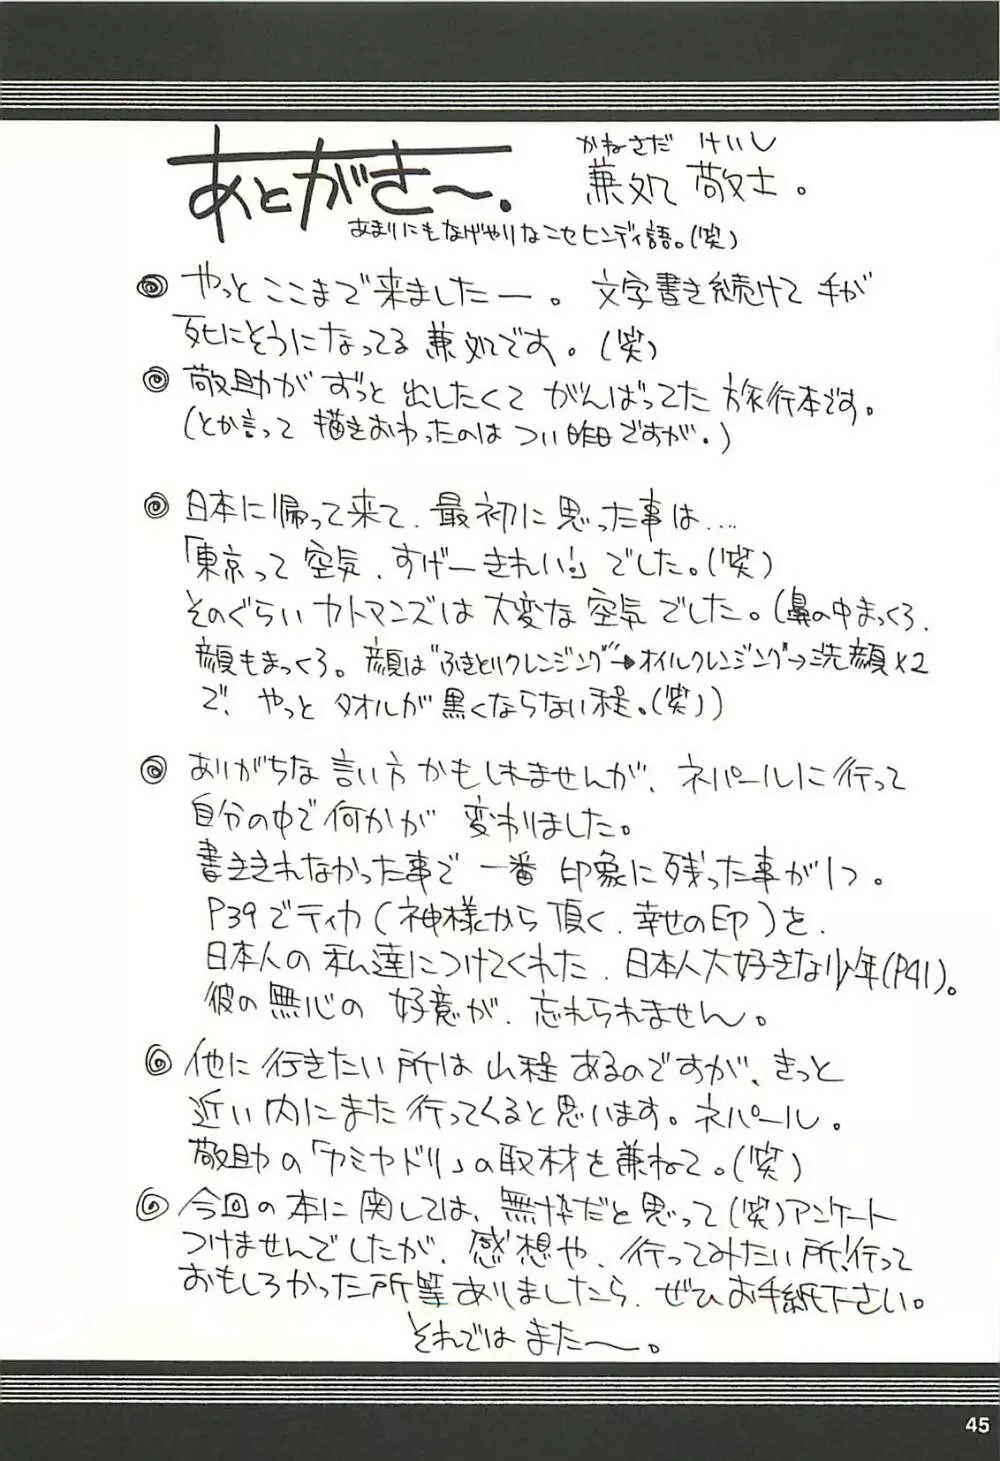 かねさだ けいし
あとがき〜。 兼処 敬士。
あまりにもなげやりなニセヒンディ語。(笑)
◎ やっと ここまで来ましたー。 文字書き続けて 手が
死にそうになってる 兼処です。(笑)
◎ 敬助が ずっと 出したくて がんばってた 旅行本です。
(とか言って 描きおわったのは つい昨日ですが。)
◎ 日本に帰って来て、最初に思った事は....
「東京って 空気、すげーきれい!」でした。(笑)
そのぐらい カトマンズは 大変な 空気でした。(鼻の中まっくろ、
顔もまっくろ。顔は“ふきとりクレンジング”→オイルクレンジング→洗顔×2
で、やっと タオルが 黒くならない程。(笑))
◎ ありがちな 言い方 かもしれませんが、ネパールに行って
自分の中で何かが 変わりました。
書ききれなかった事で 一番 印象に残った事が1つ。
P39でティカ(神様から 頂く、幸せの印)を、
日本人の 私達につけてくれた、日本人大好きな少年(P41)。
彼の無心の 好意が、忘れられません。
◎ 他に 行きたい所は 山程 あるのですが、きっと
近い内にまた 行ってくると思います。ネパール。
敬助の「カミヤドリ」の取材を兼ねて。(笑)
◎ 今回の 本に 関しては、無粋だと思って(笑)アンケート
つけませんでしたが、感想や、行ってみたい所!行って
おもしろかった所等ありましたら、ぜひお手紙下さい。
それでは また〜。
45